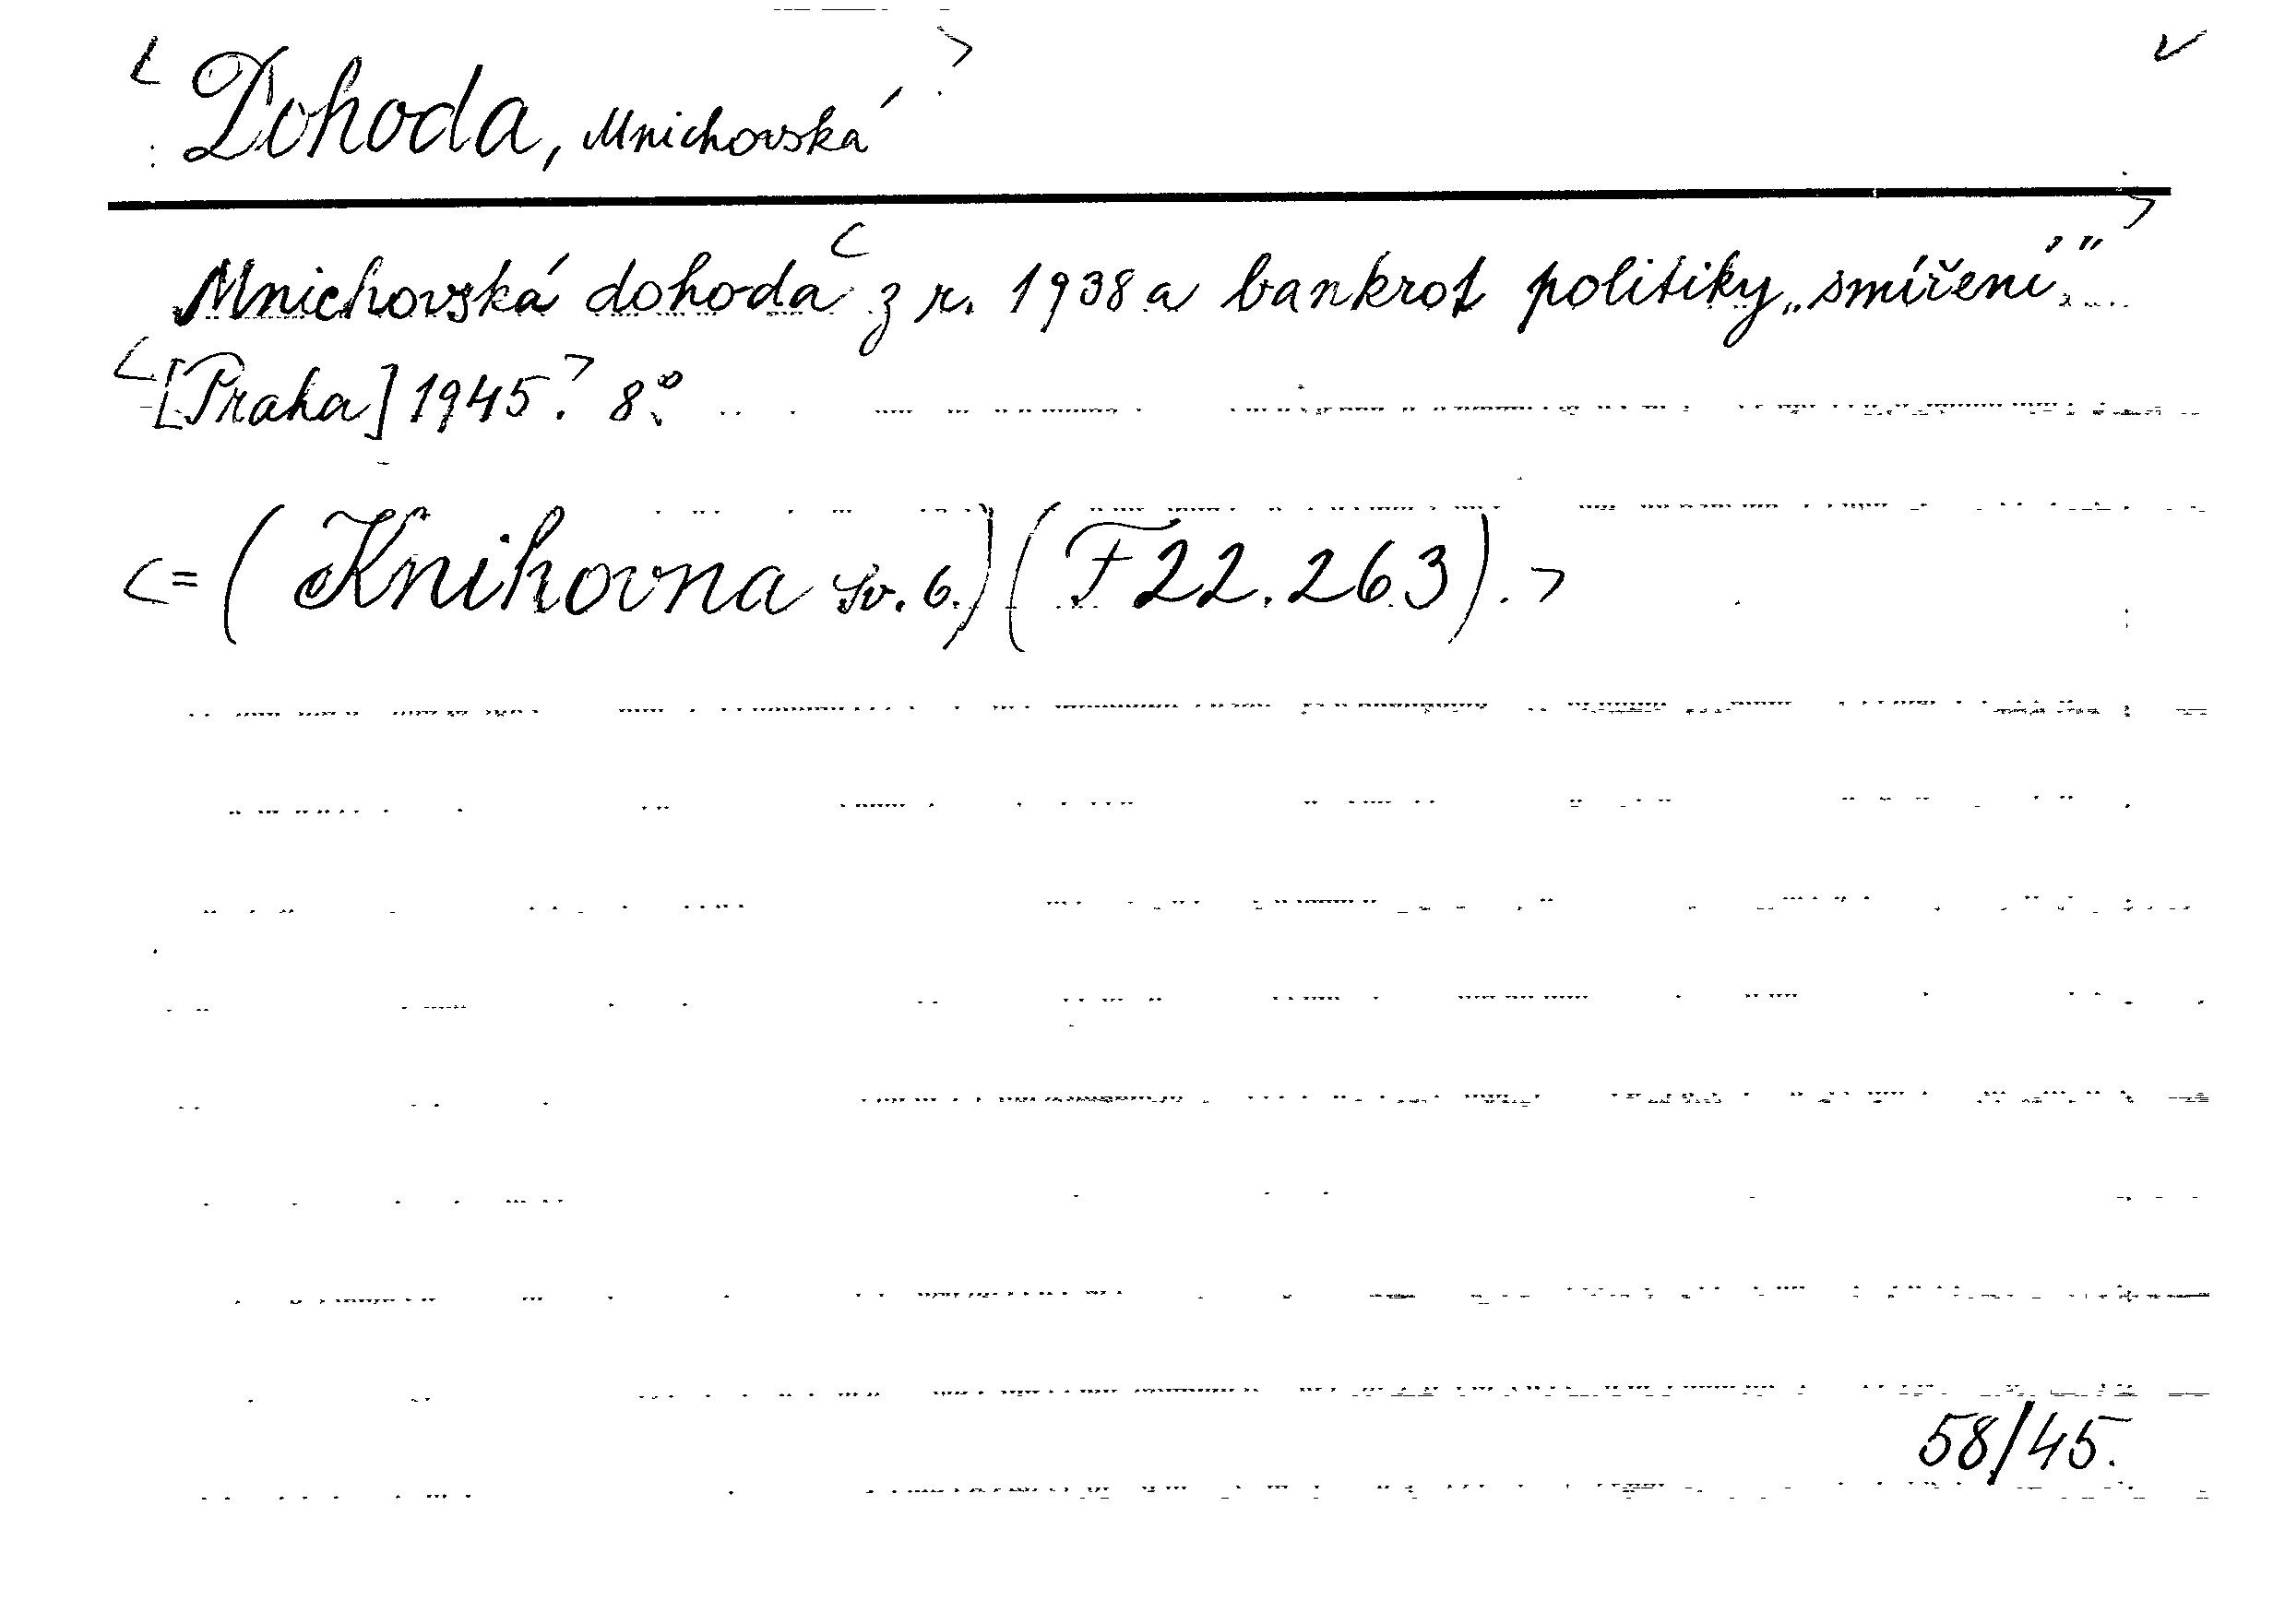 < Dohoda, Mnichovská >
Mnichovská dohoda < z r. 1938 a bankrot politiky „smíření”. >
< [Praha] 1945. > 8°.
< = ( Knihovna sv. 6.) ( F 22.263). >
58/45.